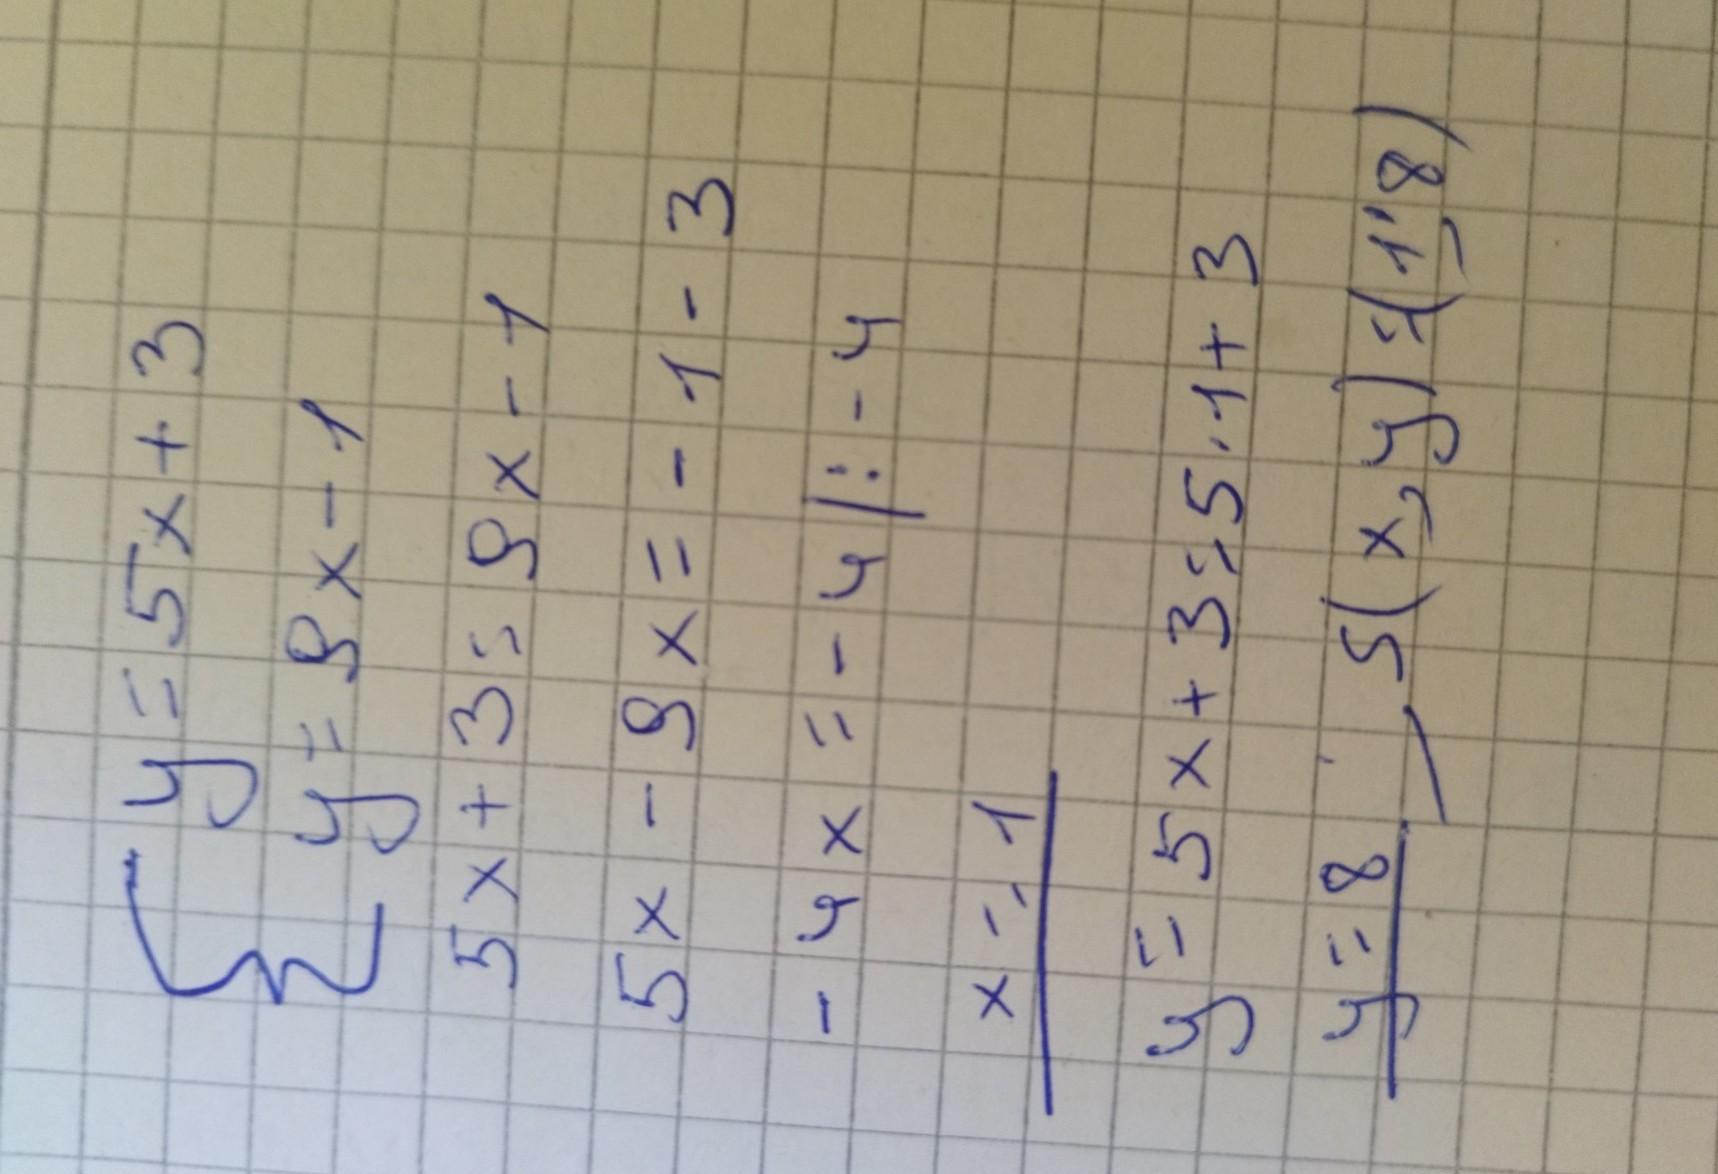 y = 5x + 3
y = 9x - 1
5x + 3 = 9x - 1
5x - 9x = - 1 - 3
- 4x = - 4 |: - 4
x = 1
y = 5x + 3 = 5·1 + 3
y = 8 S(x,y) = (1;8)